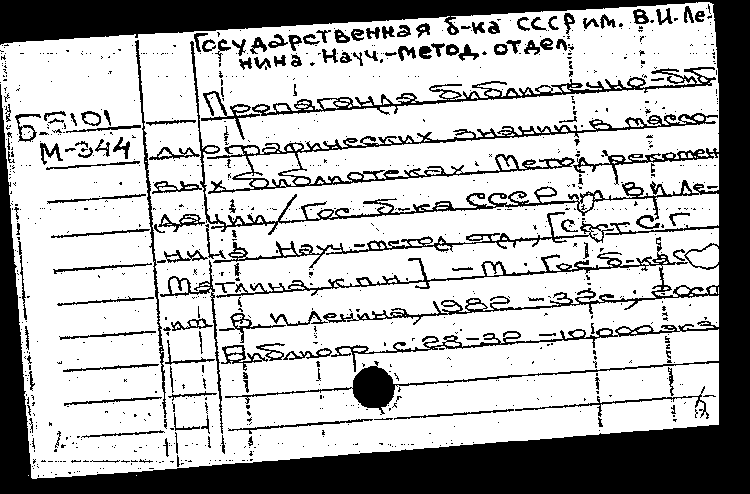 Государственная б-ка СССР им. В.И. Ле-
нина. Науч.-метод. отдел.
Б-5101
М-344
Пропаганда библиотечно-биб
лиографических знаний в массо-
вых библиотеках: Метод. рекомен
дации / Гос. б-ка СССР им. В.И. Ле-
нина. Науч.-метод. отд.; [Сост. С.Г.
Матлина, к.п.н.] - М.: Гос. б-ка
им. В.И. Ленина, 1982 - 32с.; 20см
Библиогр: с. 28-32 - 10.000 экз